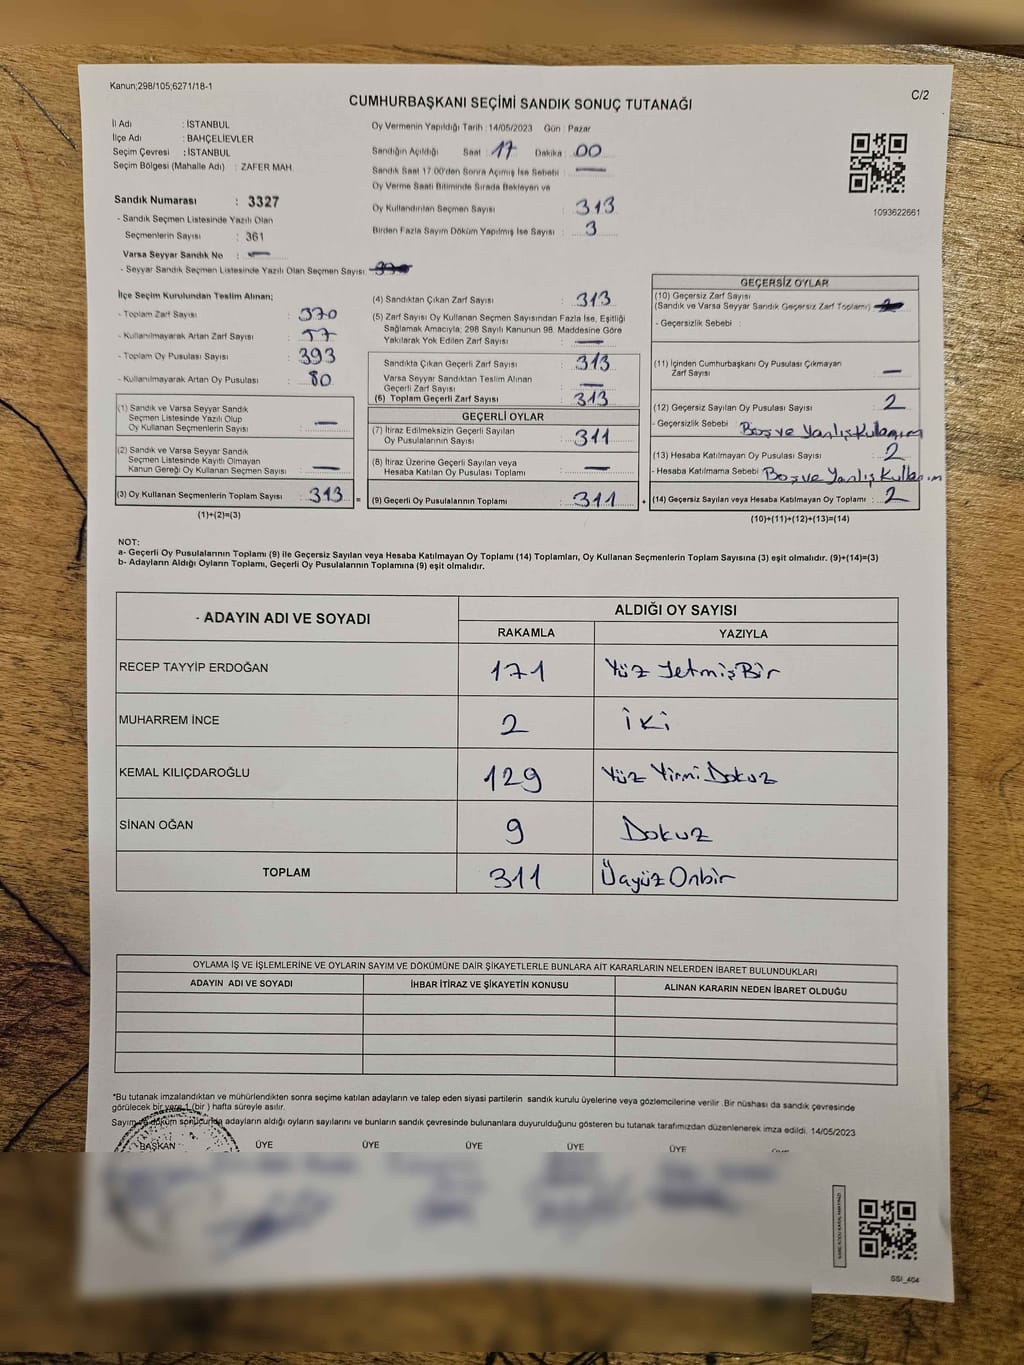 Kanun;298/105;6271/18-1
C/2
CUMHURBAŞKANI SEÇİMİ SANDIK SONUÇ TUTANAĞI
İl Adı : İSTANBUL
İlçe Adı : BAHÇELİEVLER
Seçim Çevresi : İSTANBUL
Seçim Bölgesi (Mahalle Adı) : ZAFER MAH.
Sandık Numarası : 3327
- Sandık Seçmen Listesinde Yazılı Olan
Seçmenlerin Sayısı : 361
Varsa Seyyar Sandık No : —
- Seyyar Sandık Seçmen Listesinde Yazılı Olan Seçmen Sayısı:
Oy Vermenin Yapıldığı Tarih : 14/05/2023 Gün : Pazar
Sandığın Açıldığı Saat : 17 Dakika : 00
Sandık Saat 17.00'den Sonra Açılmış İse Sebebi : —
Oy Verme Saati Bitiminde Sırada Bekleyen ve
Oy Kullandırılan Seçmen Sayısı : 313
Birden Fazla Sayım Döküm Yapılmış İse Sayısı : 3
1093622661
İlçe Seçim Kurulundan Teslim Alınan;
- Toplam Zarf Sayısı : 370
- Kullanılmayarak Artan Zarf Sayısı : 57
- Toplam Oy Pusulası Sayısı : 393
- Kullanılmayarak Artan Oy Pusulası : 80
(1) Sandık ve Varsa Seyyar Sandık
Seçmen Listesinde Yazılı Olup
Oy Kullanan Seçmenlerin Sayısı : —
(2) Sandık ve Varsa Seyyar Sandık
Seçmen Listesinde Kayıtlı Olmayan
Kanun Gereği Oy Kullanan Seçmen Sayısı : —
(3) Oy Kullanan Seçmenlerin Toplam Sayısı : 313 =
(1)+(2)=(3)
(4) Sandıktan Çıkan Zarf Sayısı : 313
(5) Zarf Sayısı Oy Kullanan Seçmen Sayısından Fazla İse, Eşitliği
Sağlamak Amacıyla; 298 Sayılı Kanunun 98. Maddesine Göre
Yakılarak Yok Edilen Zarf Sayısı : —
Sandıkta Çıkan Geçerli Zarf Sayısı : 313
Varsa Seyyar Sandıktan Teslim Alınan
Geçerli Zarf Sayısı : —
(6) Toplam Geçerli Zarf Sayısı : 313
GEÇERLİ OYLAR
(7) İtiraz Edilmeksizin Geçerli Sayılan
Oy Pusulalarının Sayısı : 311
(8) İtiraz Üzerine Geçerli Sayılan veya
Hesaba Katılan Oy Pusulası Toplamı : —
(9) Geçerli Oy Pusulalarının Toplamı : 311 +
GEÇERSİZ OYLAR
(10) Geçersiz Zarf Sayısı
(Sandık ve Varsa Seyyar Sandık Geçersiz Zarf Toplamı) :
- Geçersizlik Sebebi :
(11) İçinden Cumhurbaşkanı Oy Pusulası Çıkmayan
Zarf Sayısı : —
(12) Geçersiz Sayılan Oy Pusulası Sayısı : 2
- Geçersizlik Sebebi : Boş ve Yanlış Kullanım
(13) Hesaba Katılmayan Oy Pusulası Sayısı : 2
- Hesaba Katılmama Sebebi : Boş ve Yanlış Kullanım
(14) Geçersiz Sayılan veya Hesaba Katılmayan Oy Toplamı : 2
(10)+(11)+(12)+(13)=(14)
NOT:
a- Geçerli Oy Pusulalarının Toplamı (9) ile Geçersiz Sayılan veya Hesaba Katılmayan Oy Toplamı (14) Toplamları, Oy Kullanan Seçmenlerin Toplam Sayısına (3) eşit olmalıdır. (9)+(14)=(3)
b- Adayların Aldığı Oyların Toplamı, Geçerli Oy Pusulalarının Toplamına (9) eşit olmalıdır.
- ADAYIN ADI VE SOYADI
ALDIĞI OY SAYISI
RAKAMLA YAZIYLA
RECEP TAYYİP ERDOĞAN 171 Yüz YetmişBir
MUHARREM İNCE 2 İki
KEMAL KILIÇDAROĞLU 129 Yüz Yirmi Dokuz
SİNAN OĞAN 9 Dokuz
TOPLAM 311 ÜçyüzOnbir
OYLAMA İŞ VE İŞLEMLERİNE VE OYLARIN SAYIM VE DÖKÜMÜNE DAİR ŞİKAYETLERLE BUNLARA AİT KARARLARIN NELERDEN İBARET BULUNDUKLARI
ADAYIN ADI VE SOYADI İHBAR İTİRAZ VE ŞİKAYETİN KONUSU ALINAN KARARIN NEDEN İBARET OLDUĞU
*Bu tutanak imzalandıktan ve mühürlendikten sonra seçime katılan adayların ve talep eden siyasi partilerin sandık kurulu üyelerine veya gözlemcilerine verilir .Bir nüshası da sandık çevresinde
görülecek bir yere 1 (bir ) hafta süreyle asılır.
Sayım ve döküm sonucunda adayların aldığı oyların sayılarını ve bunların sandık çevresinde bulunanlara duyurulduğunu gösteren bu tutanak tarafımızdan düzenlenerek imza edildi. 14/05/2023
BAŞKAN ÜYE ÜYE ÜYE ÜYE ÜYE
SSI_404